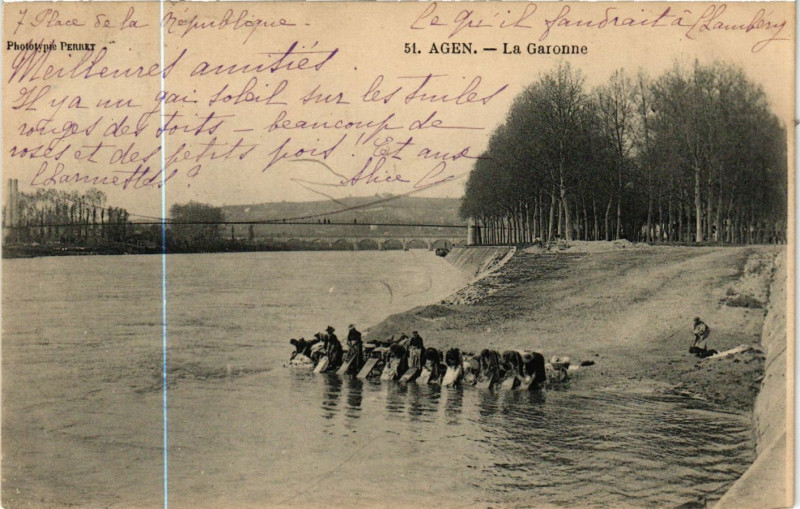 7 Place de la République -
ce qu'il faudrait à Chambéry
Phototypie PERRET
51. AGEN. — La Garonne
Meilleures amitiés.
Il y a un gai soleil sur les tuiles
rouges des toits — beaucoup de
roses et des petits pois ! Et aux
Charmettes ?
Alice C